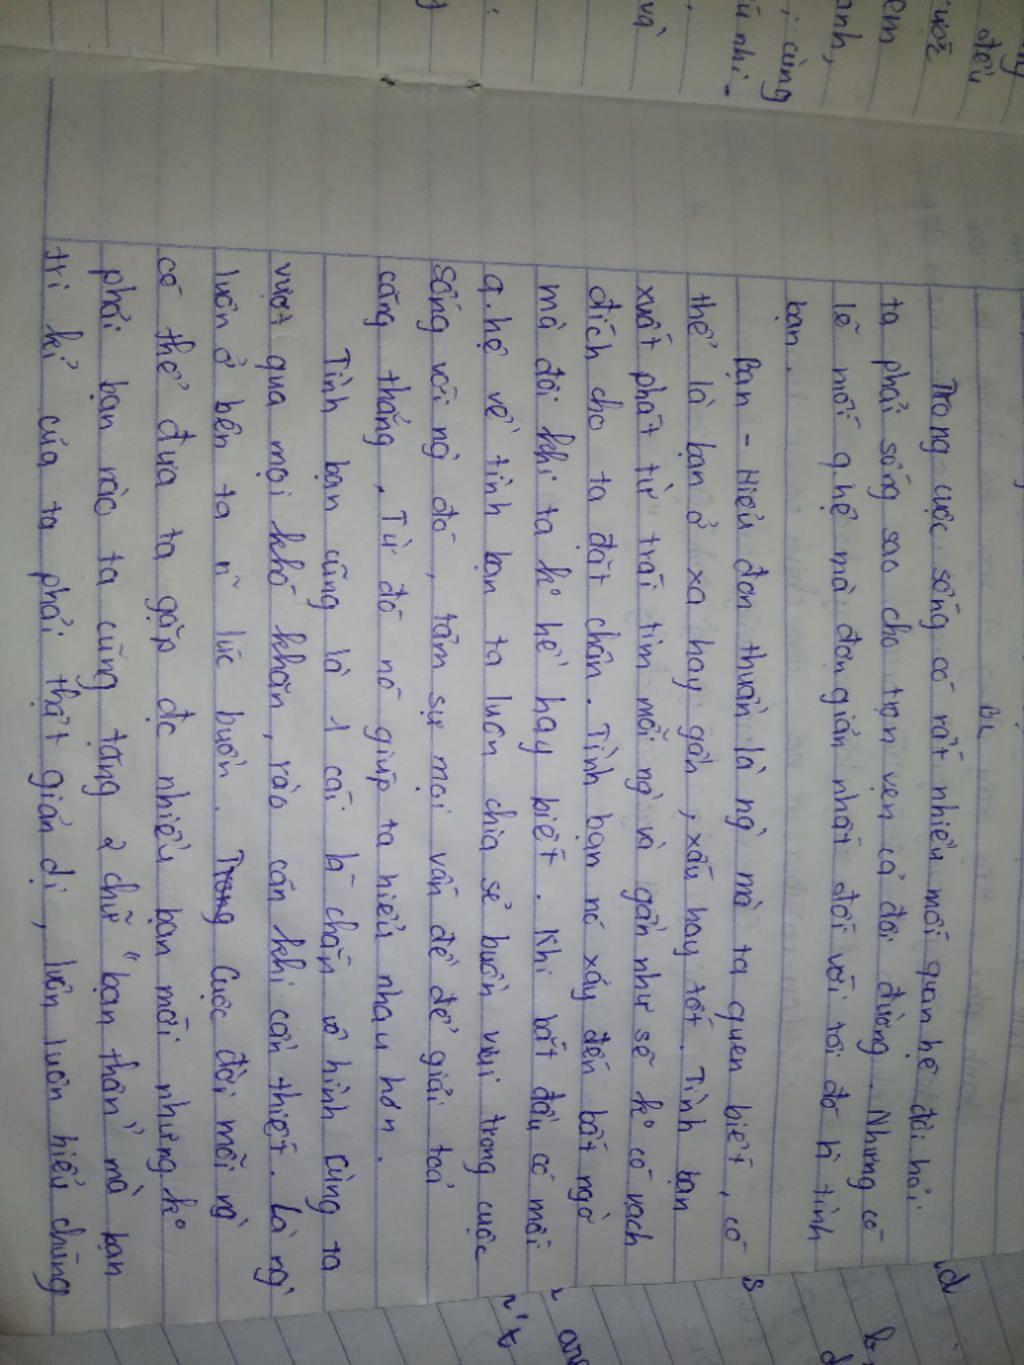 Bài
Trong cuộc sống có rất nhiều mối quan hệ đòi hỏi
ta phải sống sao cho trọn vẹn cả đôi đường. Nhưng có
lẽ mối q.hệ mà đơn giản nhất đối với tôi đó là tình
bạn.
Bạn - Hiểu đơn thuần là ng` mà ta quen biết, có
thể là bạn ở xa hay gần, xấu hay tốt. Tình bạn
xuất phát từ trái tim mỗi ng` và gần như sẽ ko có vạch
đích cho ta đặt chân. Tình bạn nó xảy đến bất ngờ
mà đôi khi ta ko hề hay biết. Khi bắt đầu có mối
q.hệ về tình bạn ta luôn chia sẻ buồn vui trong cuộc
sống với ng` đó, tâm sự mọi vấn đề để giải toả
căng thẳng. Từ đó nó giúp ta hiểu nhau hơn.
Tình bạn cũng là 1 cái lá chắn vô hình cùng ta
vượt qua mọi khó khăn, rào cản khi cần thiết. Là ng`
luôn ở bên ta n~ lúc buồn. Trong cuộc đời mỗi ng`
có thể đưa ta gặp đc nhiều bạn mới nhưng ko
phải bạn nào ta cũng tặng 2 chữ "bạn thân" mà bạn
tri kỉ của ta phải thật giản dị, luôn luôn hiểu chúng
đều
ruột
em
anh,
; cùng
ũ nhi.
và